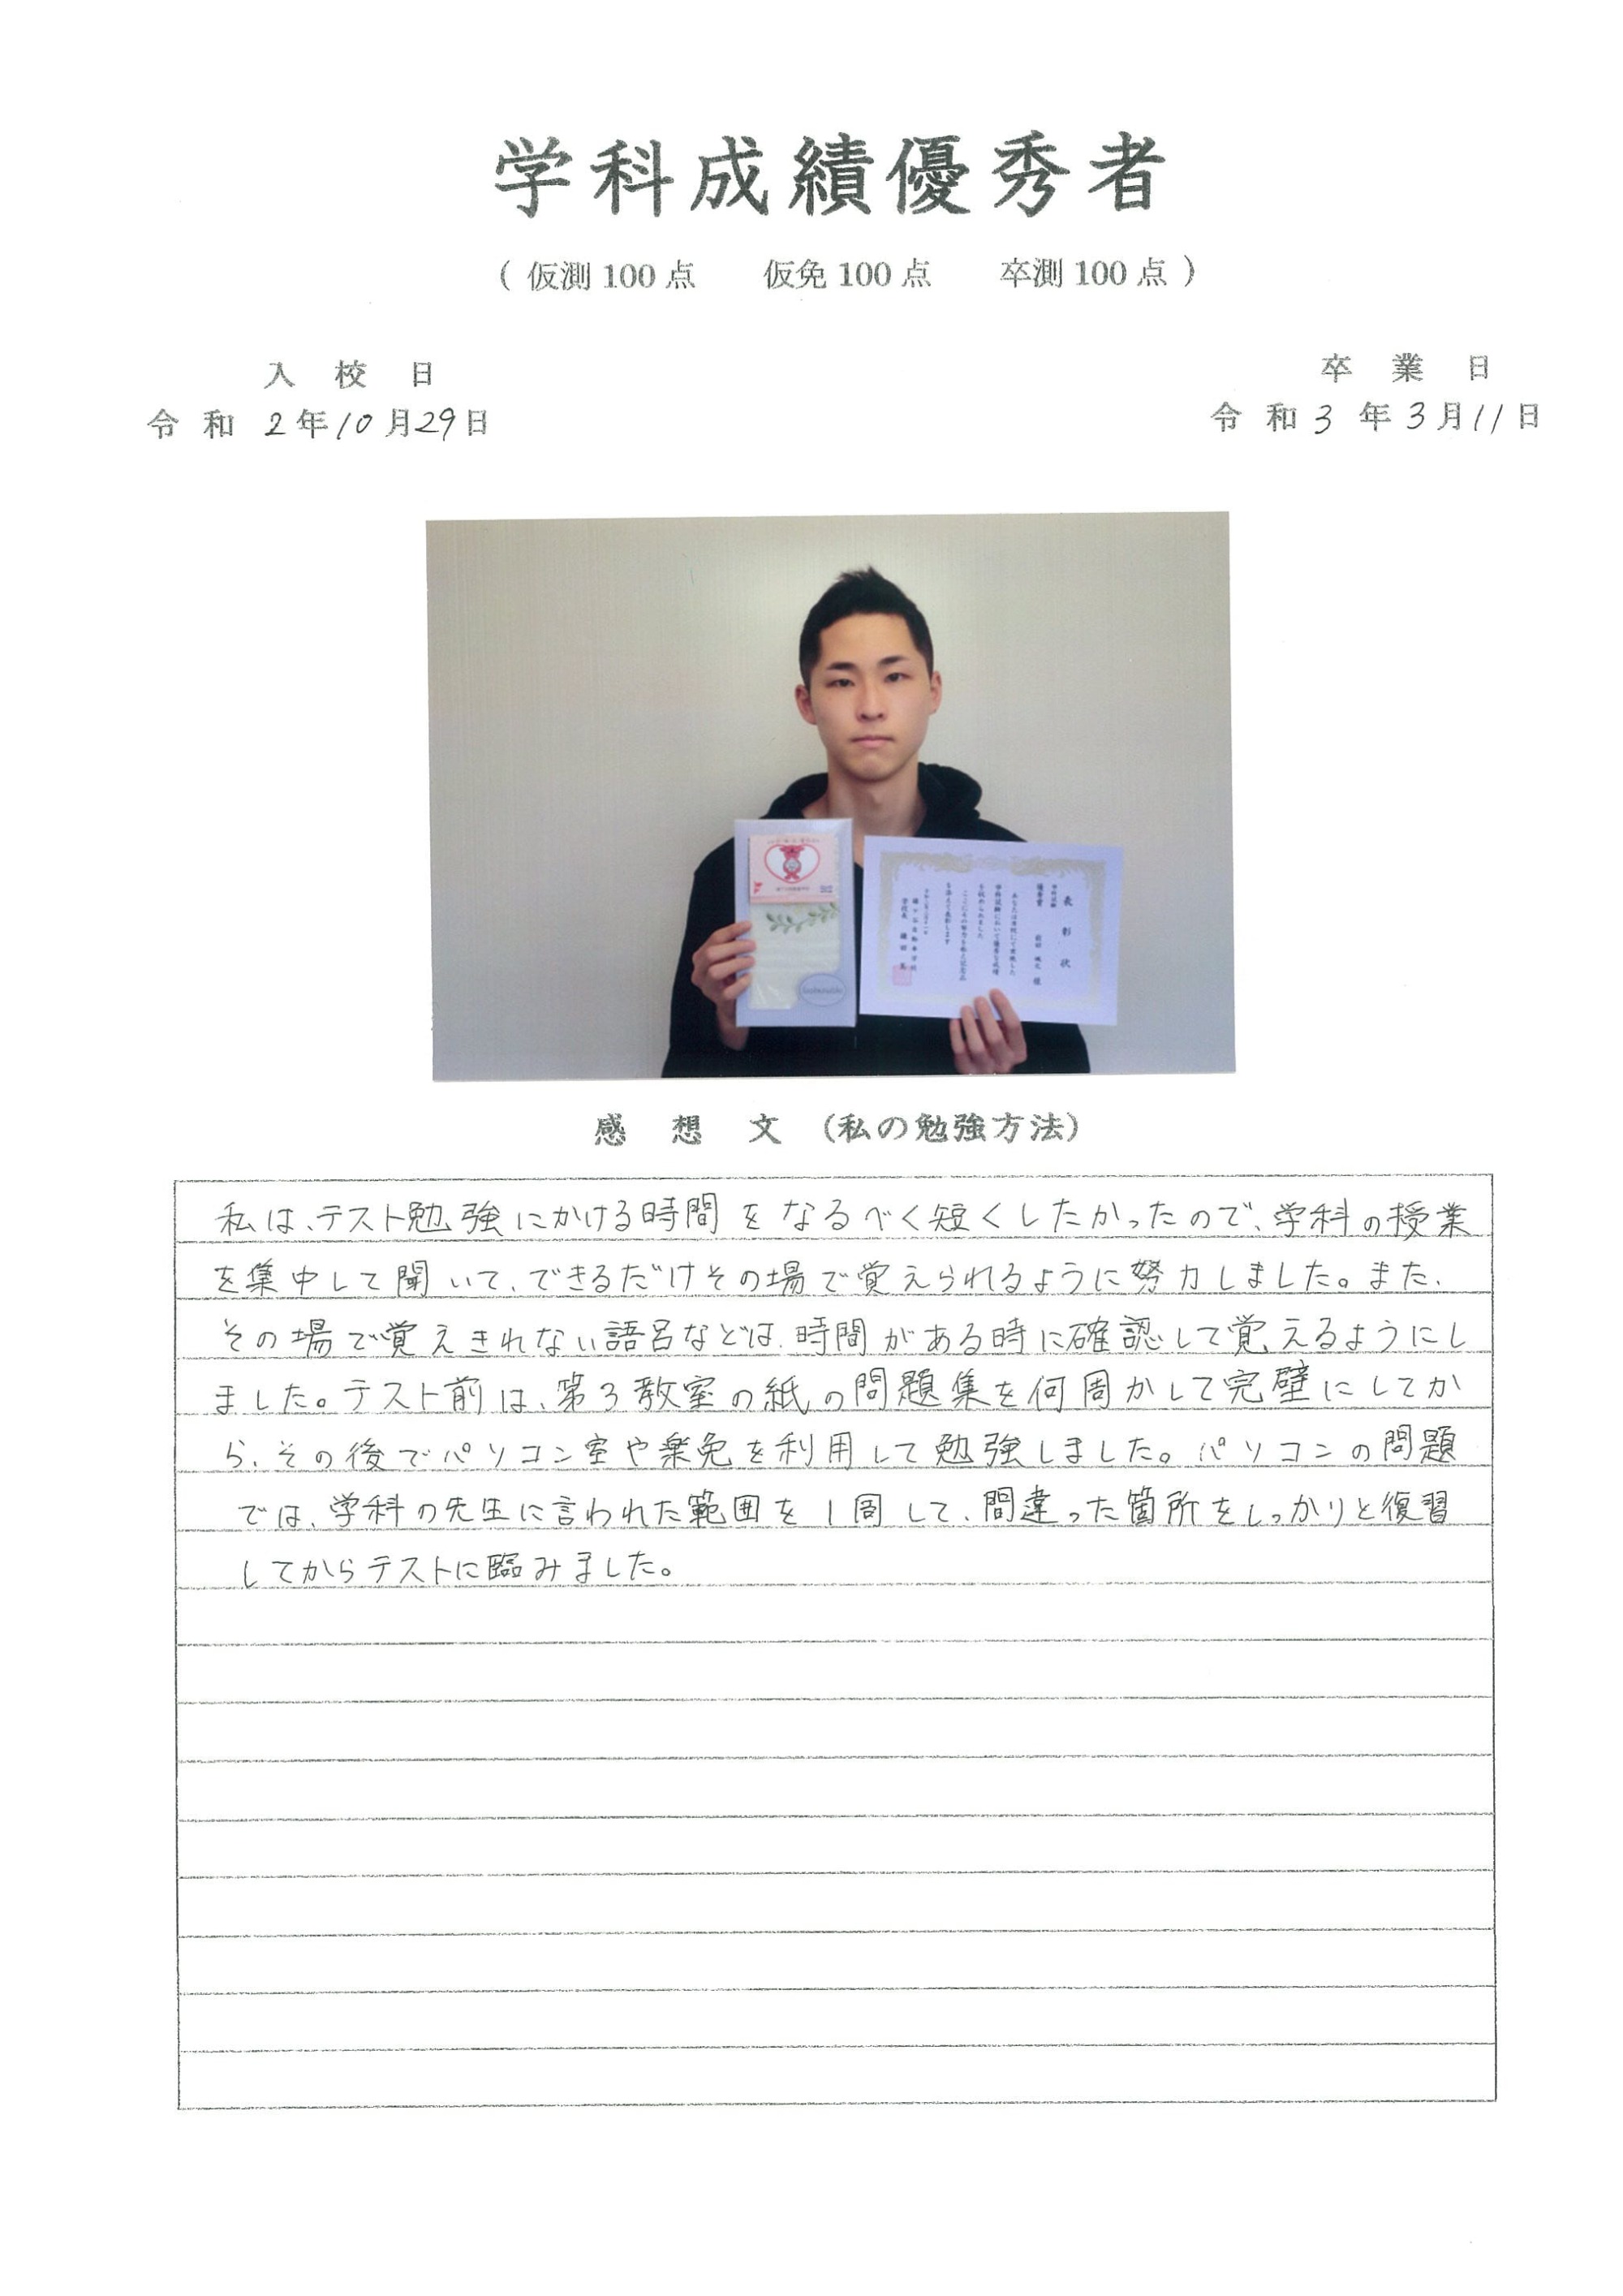 学科成績優秀者
（ 仮測 100 点　仮免 100 点　卒測 100 点 ）
入 校 日
令 和 2 年 10 月 29 日
卒 業 日
令 和 3 年 3 月 11 日
表 彰 状
学科試験
優秀賞
様
あなたは本校にて実施した
学科試験において優秀な成績
を収められました
ここにその努力を称え記念品
を添えて表彰します
感 想 文 （私の勉強方法）
私は、テスト勉強にかける時間をなるべく短くしたかったので、学科の授業
を集中して聞いて、できるだけその場で覚えられるように努力しました。また、
その場で覚えきれない語呂などは、時間がある時に確認して覚えるようにし
ました。テスト前は、第3教室の紙の問題集を何周かして完璧にしてか
ら、その後でパソコン室や楽免を利用して勉強しました。パソコンの問題
では、学科の先生に言われた範囲を1周して、間違った箇所をしっかりと復習
してからテストに臨みました。